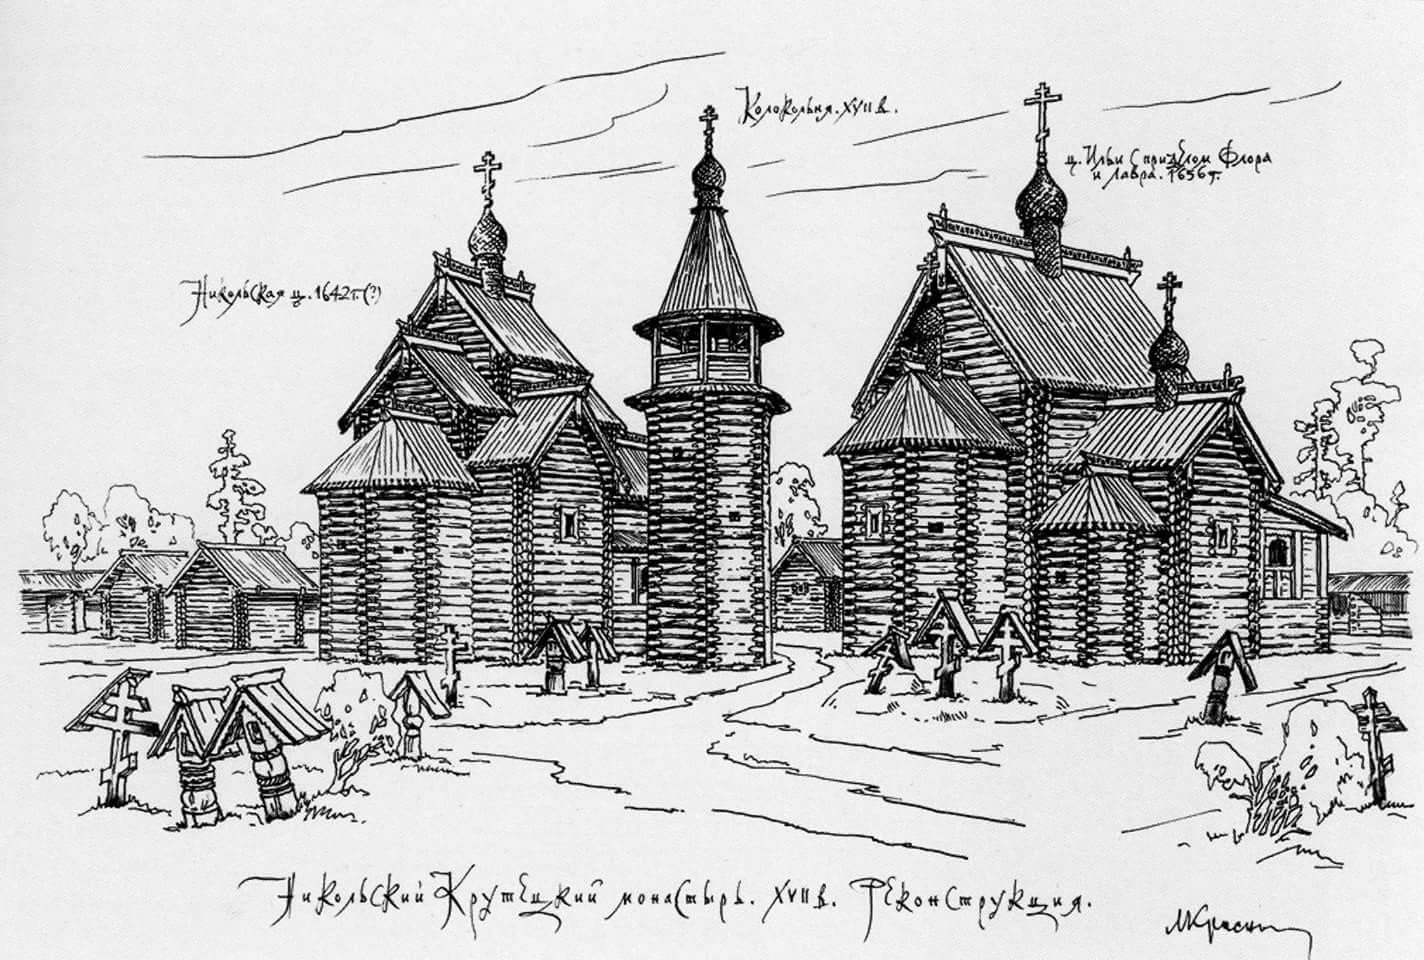 Колокольня. XVII в.
ц. Ильи с приделом Флора
и Лавра. 1656 г.
Никольская ц. 1642 г. (?)
Никольский Крутецкий монастырь. XVII в. Реконструкция.